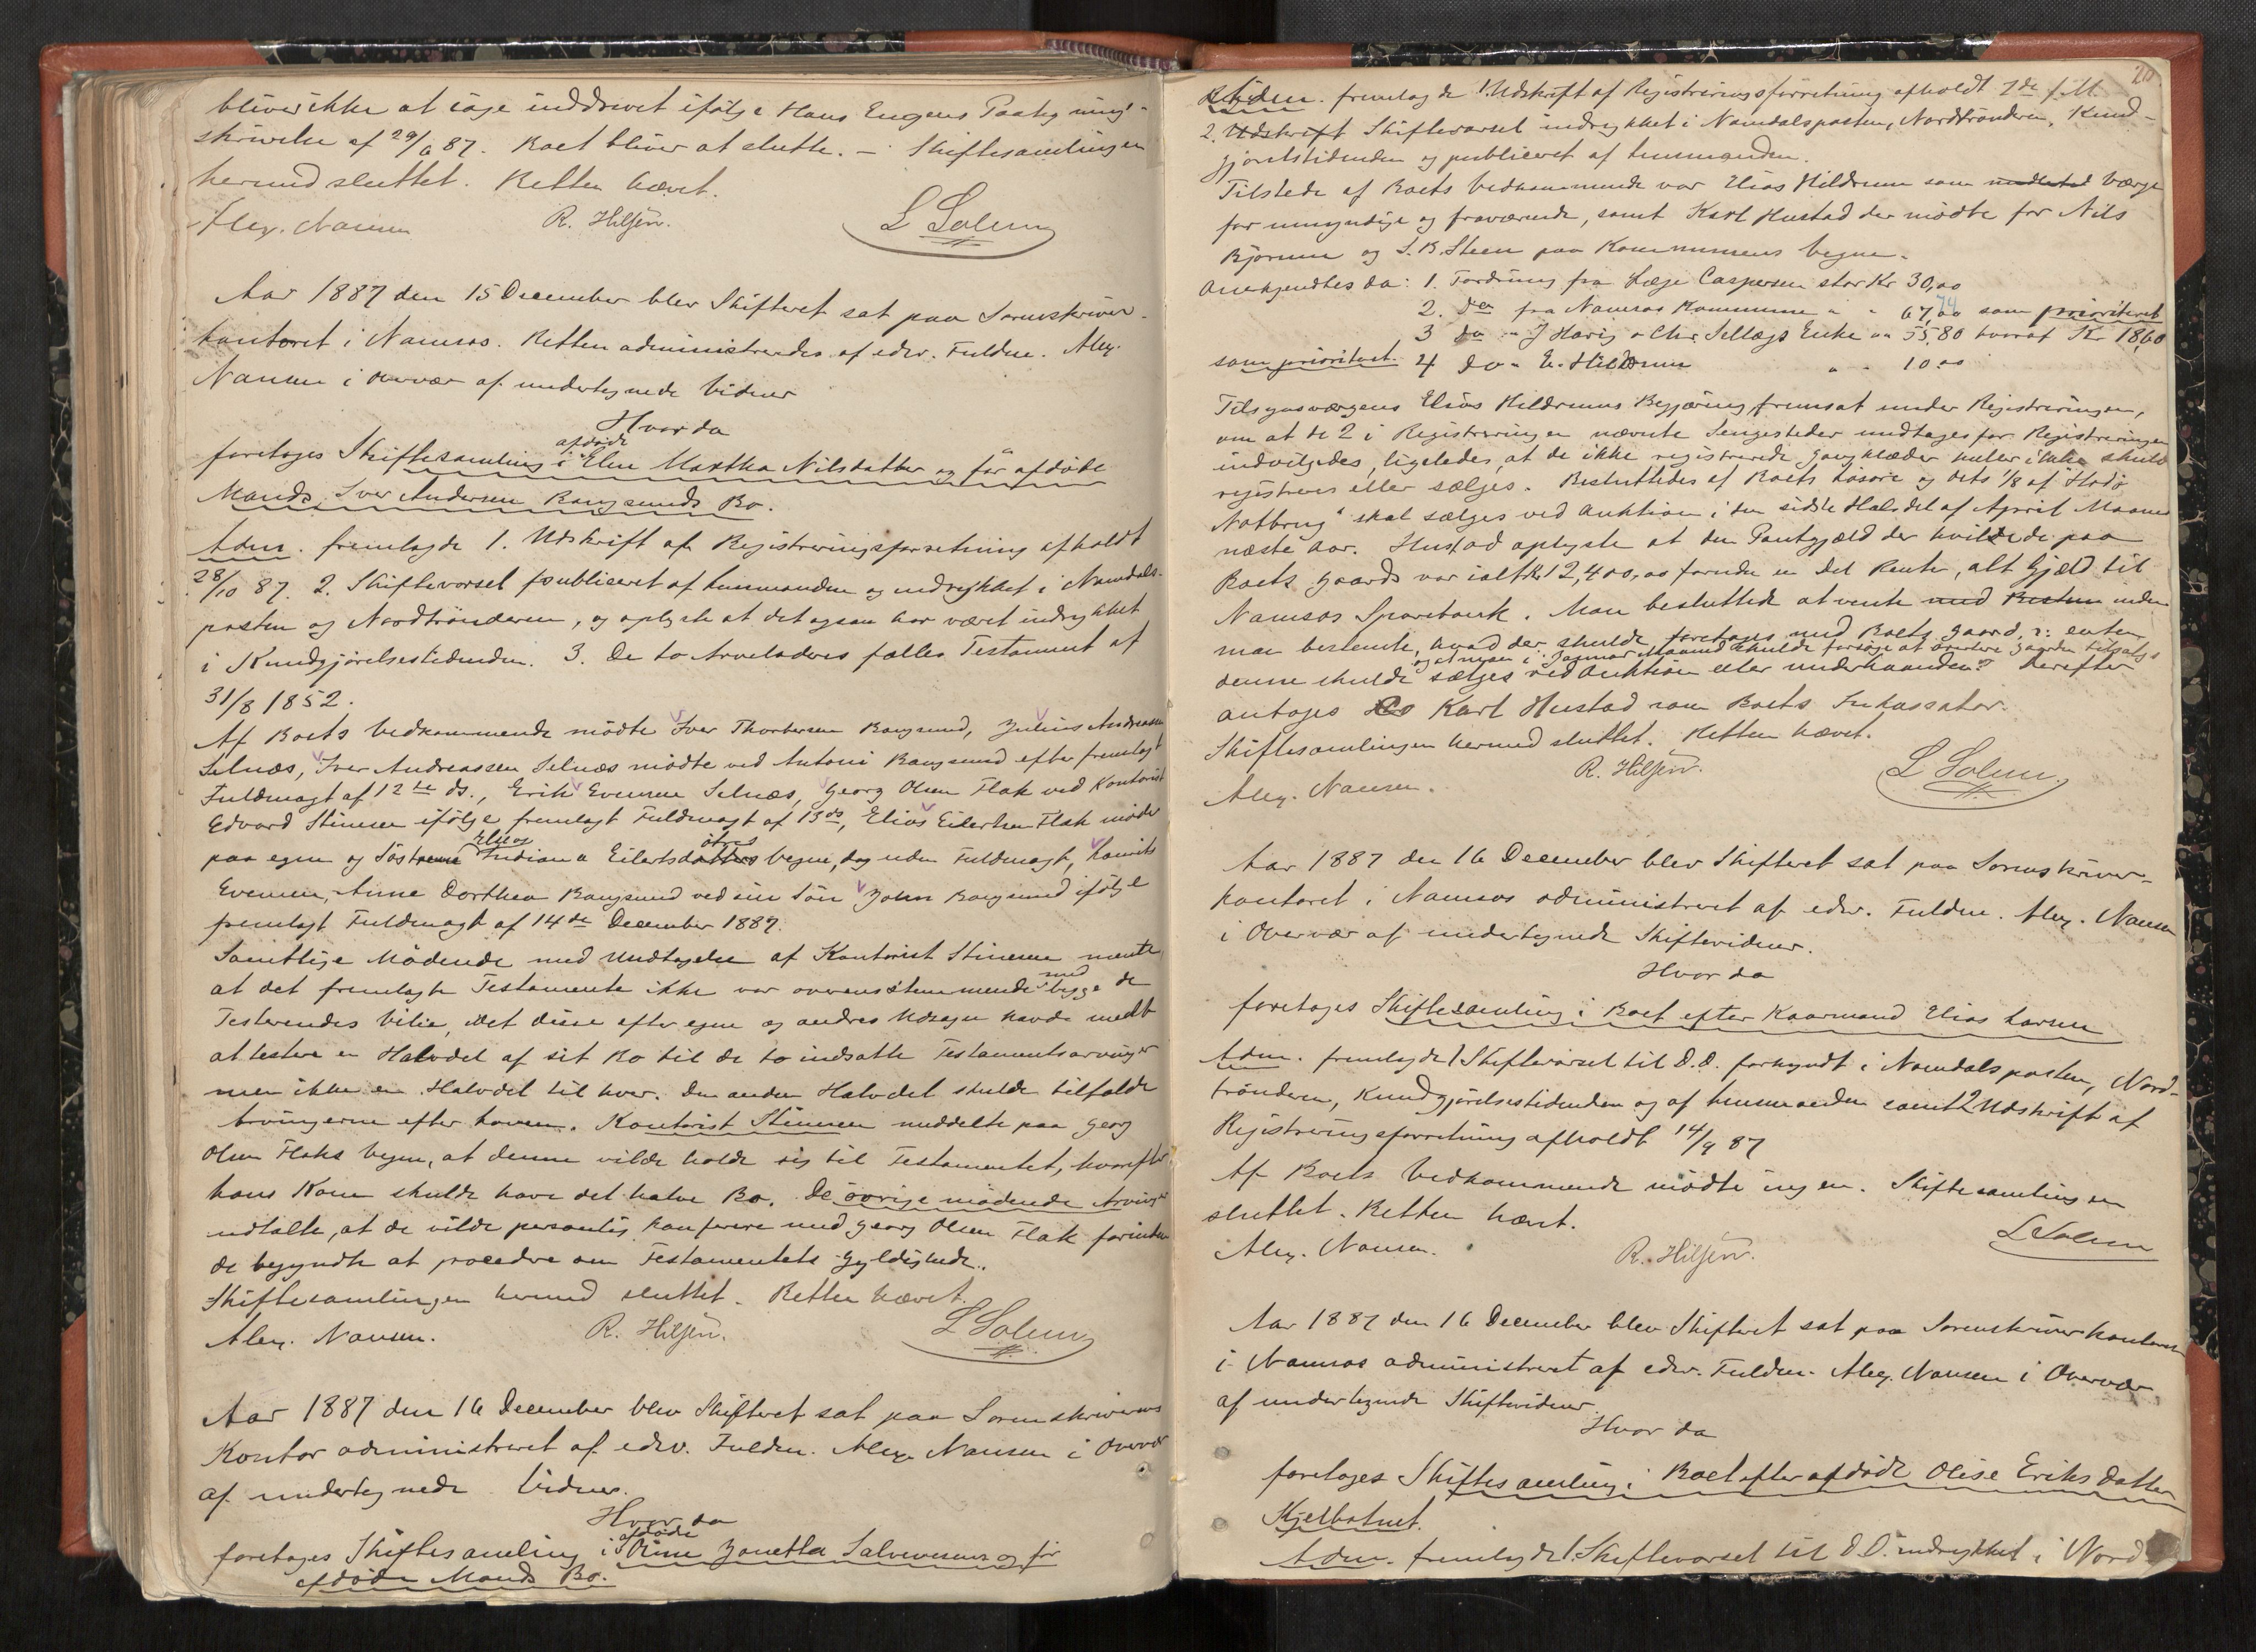 bliver ikke at søge inddrevet ifølge Hans Eugens Paategnings-
skrivelse af 29/6 87. Boet bliver at slutte. – Skiftesamlingen
hermed sluttet. Retten hævet.
Alex. Nansen R. Hilsen. L Solum
Aar 1887 den 15 December blev Skifteret sat paa Sorenskriver-
kontoret i Namsos. Retten administreredes af edsv. Fuldm. Alex.
Nansen i Overvær af undertegnede Vidner
Hvor da
foretoges Skiftesamling i afdøde Elen Martha Nilsdatter og før afdøde
Mands Iver Andersen Bangsunds Bo.
Adm. fremlagde 1. Udskrift af Registreringsforretning afholdt
28/10 87. 2. Skiftevarsel publiceret af Lensmanden og indrykket i Namdals-
posten og Nordtrønderen, og oplyste at det ogsaa har været indrykket
i Kundgjørelsestidenden. 3. De to Arveladeres fælles Testament af
31/8 1852.
Af Boets Vedkommende mødte Iver Thorbersen Bangsund, Julius Andreassen
Selnæs, Iver Andreassen Selnæs mødte ved Antoni Bangsund efter fremlagt
Fuldmagt af 12te ds., Erik Evensen Selnæs, Georg Olsen Flak ved Kontorist
Edvard Stinesen ifølge fremlagt Fuldmagt af 13 ds, Elias Eilertsen Flak møder
paa egen og Søstrene Else og Indiana Eilertsdøtres Vegne, dog uden Fuldmagt,
Evensen, Anne Dorthea Bangsund ved sin Søn John Bangsund ifølge
fremlagt Fuldmagt af 14de December 1887.
Samtlige Mødende med Undtagelse af Kontorist Stinesen mente,
at det fremlagte Testamente ikke var overensstemmende med begge de
Testerendes Vilie, idet disse efter egne og andres Udsagn havde ment
at testere en Halvdel af sit Bo til de to indsatte Testamentsarvinger
men ikke en Halvdel til hver. Den anden Halvdel skulde tilfalde
Arvingerne efter Loven. Kontorist Stinesen meddelte paa Georg
Olsen Flaks Vegne, at denne vilde holde sig til Testamentet, hvorefter
hans Kone skulde have det halve Bo. De øvrige mødende Arvinger
udtalte, at de vilde personlig konferere med Georg Olsen Flak forinden
de begyndte at procedere om Testamentets Gyldighed.
Skiftesamlingen hermed sluttet. Retten hævet.
Alex. Nansen. R. Hilsen. L Solum
Aar 1887 den 16 December blev Skifteret sat paa Sorenskriverens
Kontor administreret af edsv. Fuldm. Alex. Nansen i Overvær
af undertegnede Vidner.
Hvor da
foretoges Skiftesamling i afdøde Oline Janetta og før
afdøde Mands Bo.
Adm. fremlagde 1. Udskrift af Registreringsforretning afholdt 7de f. M.
2. Udskrift Skiftevarsel indrykket i Namdalsposten, Nordtrønderen, Kund-
gjørelstidenden og publiceret af Lensmanden.
Tilstede af Boets Vedkommende var Elias Hildrum som Værge
for umyndige og fraværende, samt Karl Hustad der mødte for Nils
Bjørum og S. B. Steen paa Kommunens Vegne.
Anerkjendtes da: 1. Fordring fra Læge Caspersen stor Kr 30,00
2. do fra Namsos Kommune " " 67,00 74 som prioriteret
3 do " J Havig " Chr. Sellægs Enke " " 55,80 hvoraf Kr 18,60
som prioritert. 4 do " E. Hildrum " " 10.00
Tilsynsværgens Elias Hildrums Begjæring fremsat under Registreringen,
om at de 2 i Registreringen nævnte Sengesteder undtages for Registreringen
indvilgedes, ligeledes, at de ikke registrerede Gangklæder heller ikke skuld
registreres eller sælges. Besluttedes at Boets Løsøre og dets 1/8 af "Hodø
Notbrug" skal sælges ved Auktion i den sidste Halvdel af April Maaned
næste Aar. Hustad oplyste at den Pantgjæld der hvilede paa
Boets Gaard var ialt Kr 12,400,00 foruden en Del Renter, alt Gjæld til
Namsos Sparebank. Man besluttede at vente med Resten inden
man bestemte, hvad der skulde foretages med Boets Gaard, ɔ: enten
denne skulde sælges ved Auktion eller underhaanden og at man i Januar Maaned skulde forsøge at avertere Gaarden tilsalgs. Derefter
antoges Karl Hustad som Boets Inkassator.
Skiftesamlingen hermed sluttet. Retten hævet.
Alex. Nansen. R. Hilsen. L Solum
Aar 1887 den 16 December blev Skifteret sat paa Sorenskriver-
kontoret i Namsos administreret af edsv. Fuldm. Alex. Nansen
i Overvær af undertegnede Skiftevidner.
Hvor da
foretoges Skiftesamling i Boet efter Kaarmand Elias Larsen
Adm. fremlagde 1 Skiftevarsel til D.D. forkyndt i Namdalsposten, Nord-
trønderen, Kundgjørelsestidenden og af Lensmanden samt 2 Udskrift af
Registreringsforretning afholdt 14/9 87
Af Boets Vedkommende mødte ingen. Skiftesamlingen
sluttet. Retten hævet.
Alex. Nansen. R. Hilsen. L Solum
Aar 1887 den 16 December blev Skifteret sat paa Sorenskriverkontoret
i Namsos administreret af edsv. Fuldm. Alex. Nansen i Overvær
af undertegnede Skiftevidner.
Hvor da
foretoges Skiftesamling i Boet efter afdøde Olise Eriksdatter
Kjelbotnet.
Adm. fremlagde 1. Skiftevarsel til D.D. indrykket i Nord-